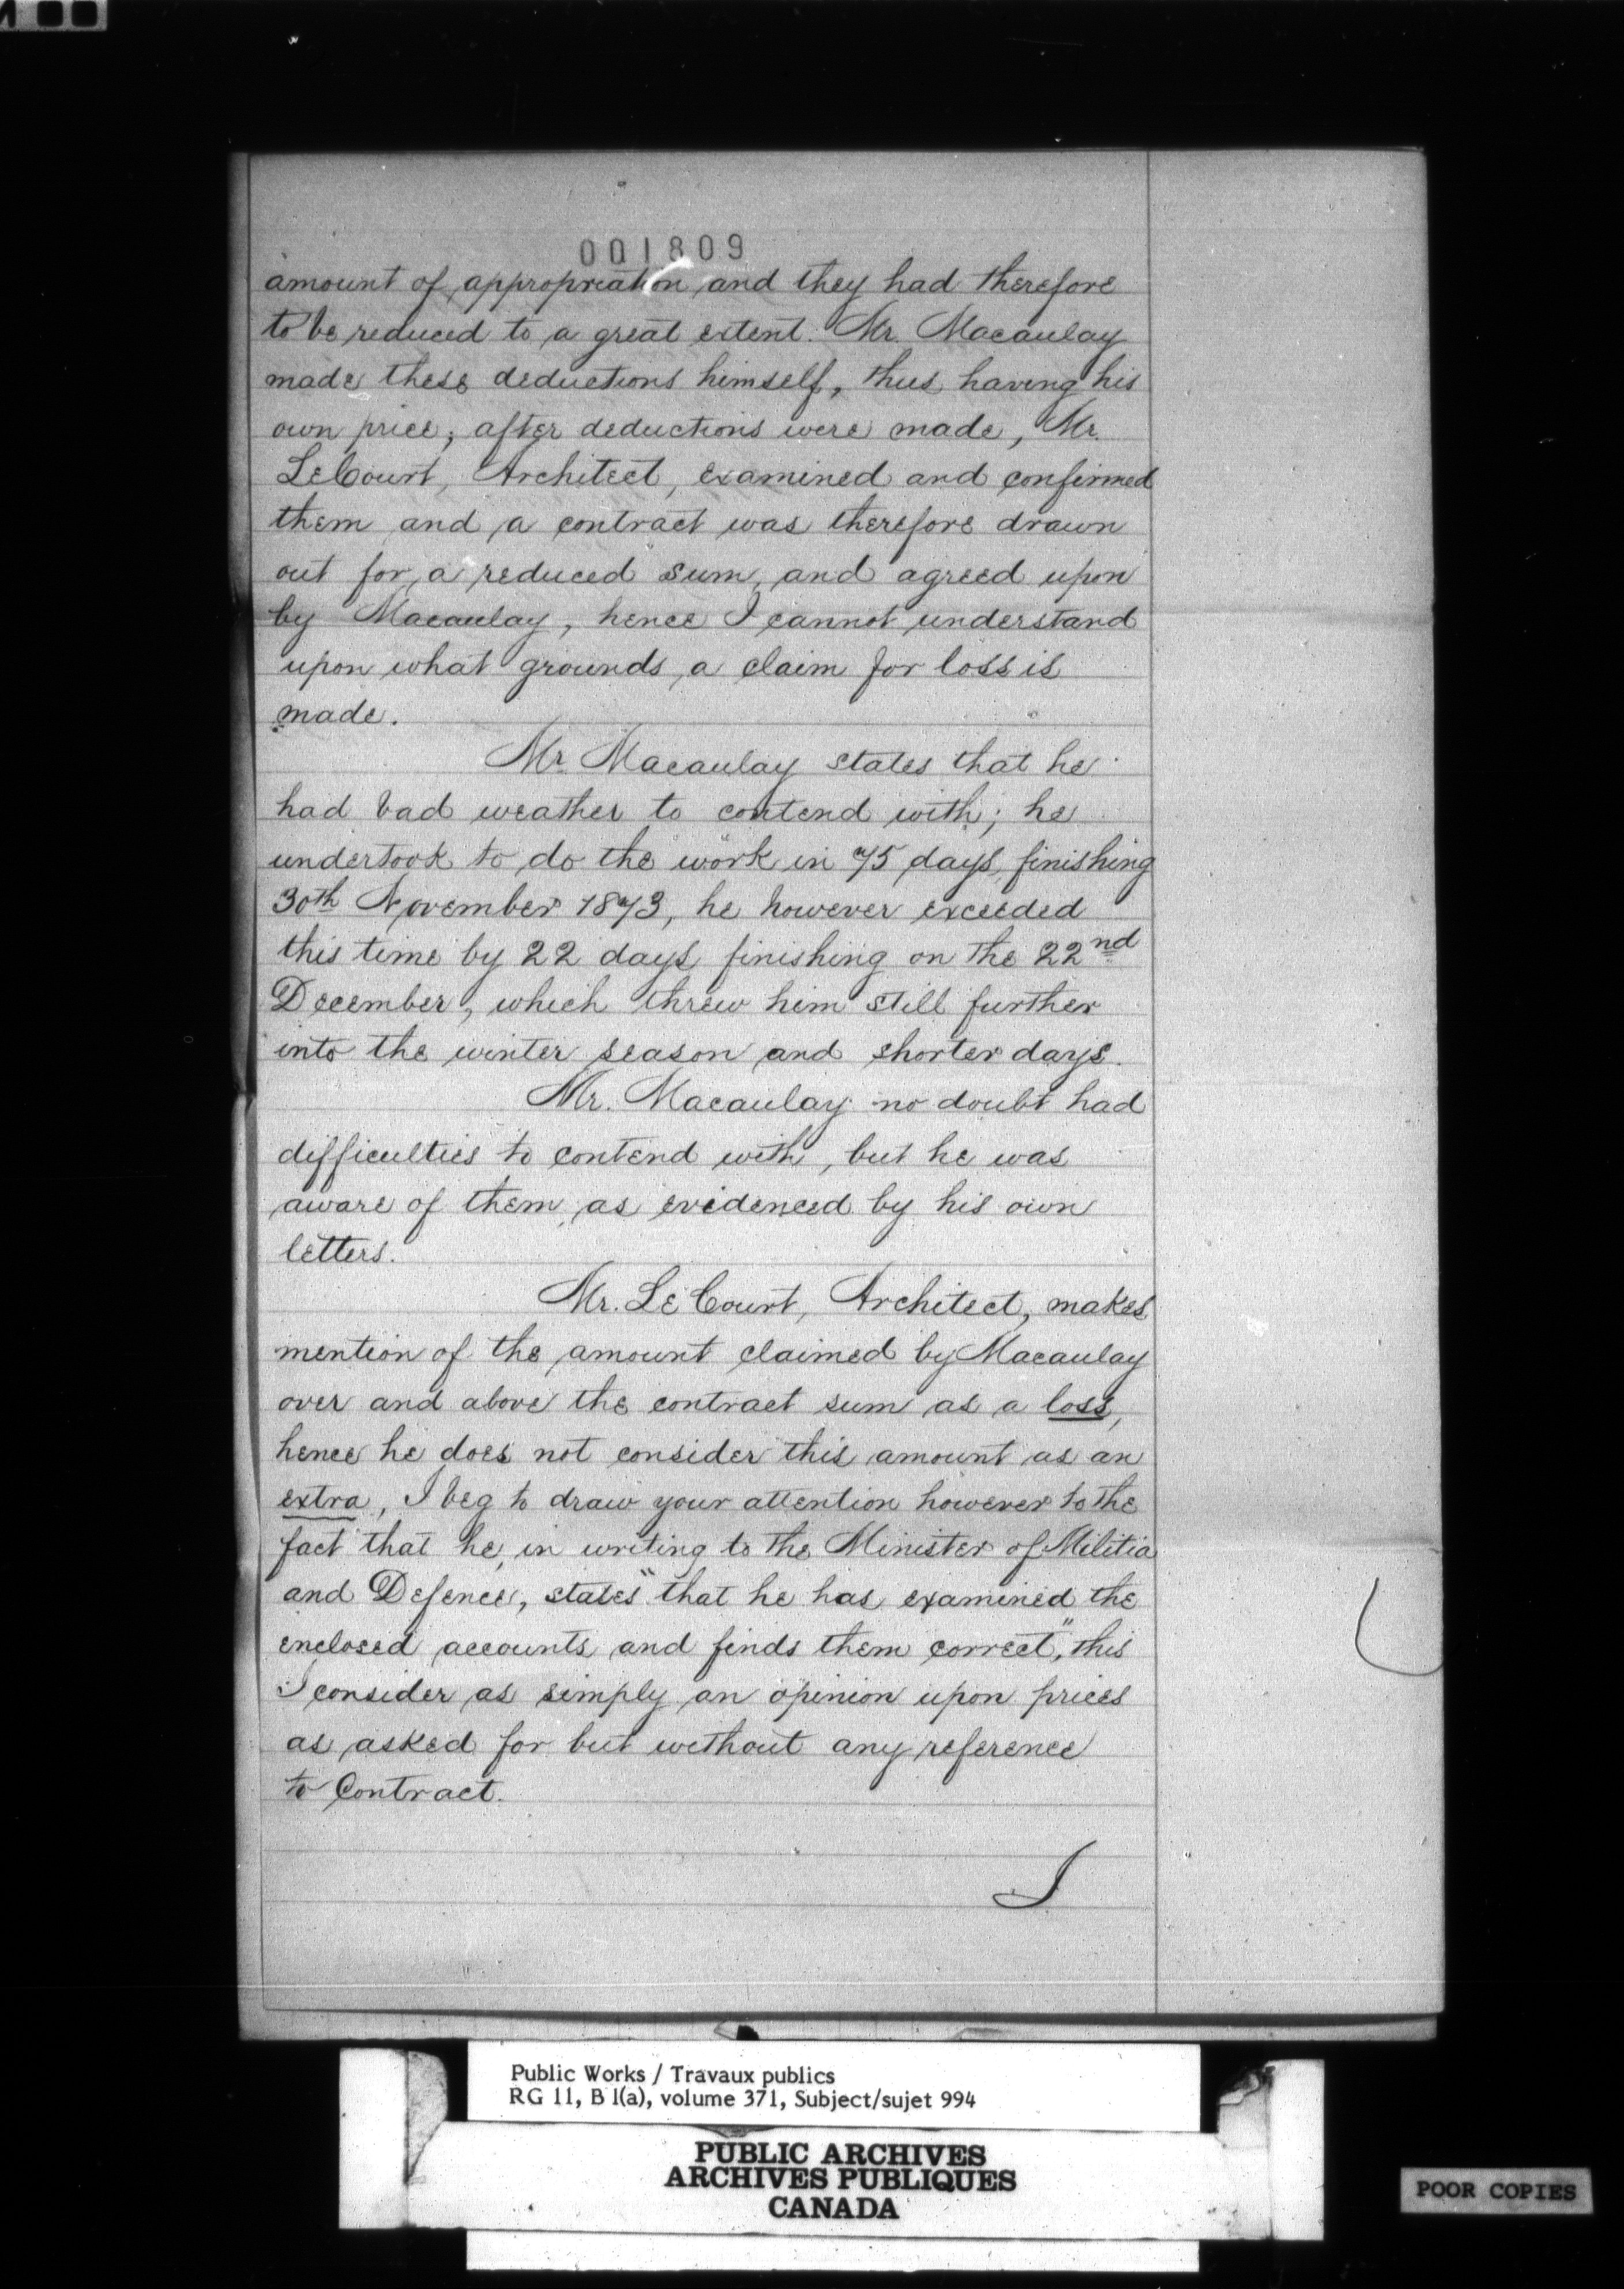 001809
amount of appropriation and they had therefore
to be reduced to a great extent. Mr. Macaulay
made these deductions himself, thus having his
own price; after deductions were made, Mr.
LeCourt, Architect, examined and confirmed
them and a contract was therefore drawn
out for a reduced sum, and agreed upon
by Macaulay, hence I cannot understand
upon what grounds a claim for loss is
made.
Mr. Macaulay states that he
had bad weather to contend with; he
undertook to do the work in 75 days, finishing
30th November 1873, he however exceeded
this time by 22 days finishing on the 22nd
December, which threw him still further
into the winter season and shorter days.
Mr. Macaulay no doubt had
difficulties to contend with, but he was
aware of them, as evidenced by his own
letters.
Mr. LeCourt, Architect, makes
mention of the amount claimed by Macaulay
over and above the contract sum as a loss,
hence he does not consider this amount as an
extra, I beg to draw your attention however to the
fact that he, in writing to the Minister of Militia
and Defence, states "that he has examined the
enclosed accounts and finds them correct," this
I consider as simply an opinion upon prices
as asked for but without any reference
to Contract.
I
Public Works / Travaux publics
RG 11, B 1(a), volume 371, Subject/sujet 994
PUBLIC ARCHIVES
ARCHIVES PUBLIQUES
CANADA
POOR COPIES